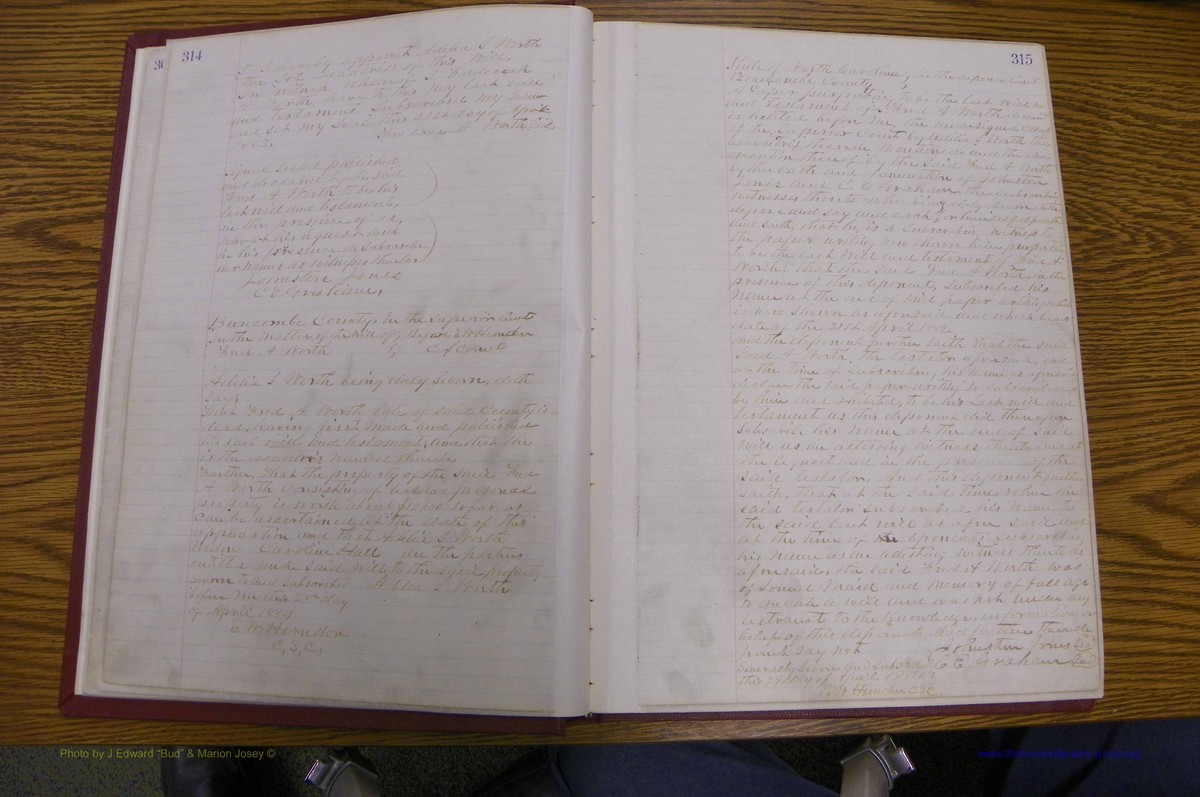 314
I hereby appoint Adelia S Worth
the Sole Executrix of this Will
In witness whereof I Frederick
Worth, have to this my last will
and testament Subscribed my name
and set my Seal this 21st day of April
1882,
Worth Seal
Signed Sealed published
and declared by the said
Fred A Worth to be his
last will and testament,
in the presence of us,
who at his request and
in his presence do Subscribe
our names as witnesses thereto
Johnston Jones
C. E. Graham,
Buncombe County, In the Superior Court
In the Matter of the Will of Before E W Herndon
Fred A Worth C S Court
Adelia S Worth being duly Sworn, doth
Say;
That Fred A. Worth late of said County is
dead, having first made and published
his last will and testament; and that she
is the executrix named therein
Further, That the property of the said Fred
A Worth consisting of personal
property is worth about so far as
can be ascertained at the date of this
application and that Adelia S Worth
Caroline Hall are the parties
entitled under said will to the said property
Sworn to and Subscribed Adelia S. Worth
before me this day
of April 1884
E W Herndon
C, S, C,
315
State of North Carolina In the Superior Court
Buncombe County
A Paper purporting to be the last will
and testament of Fred A Worth
is exhibited before me, the undersigned Clerk
of the Superior Court by Adelia S Worth the
executrix therein mentioned and the due
execution thereof by the said Fred A Worth
by the oath and examination of Johnston
Jones and C E Graham the subscribing
witnesses thereto who being duly Sworn doth
depose and say and each for himself deposeth
and saith, that he is a Subscribing witness to
the paper writing now shown him purporting
to be the last will and testament of Fred A
Worth; that the said Fred A Worth, in the
presence of this deponent, Subscribed his
name at the end of said paper writing which
is now shown as aforesaid and which bears
date of the 21st April 1882
And the deponent further saith That the said
Fred A Worth, the testator aforesaid, did
at the time of subscribing his name as aforesaid
declare the said paper writing so subscribed
by him and exhibited, to be his last will and
testament and this deponent did thereupon
Subscribe his name at the end of said
will as an attesting witness thereto and at
the request and in the presence of the
said testator. And this deponent further
saith, that at the said time when the
said testator subscribed his name to
the said last will as afore said and
at the time of deponents subscribing
his name as an attesting witness thereto as
aforesaid, the said Fred A Worth was
of Sound Mind and memory of full age
to execute a will and was not under any
restraint to the knowledge, information or
belief of this deponent And further these
deponents say not Johnston Jones Seal
Severally Sworn and Subscribed C E Graham Seal
this 29 day of April 1884
E W Herndon C S C
Photo by J Edward "Bud" & Marion Josey ©